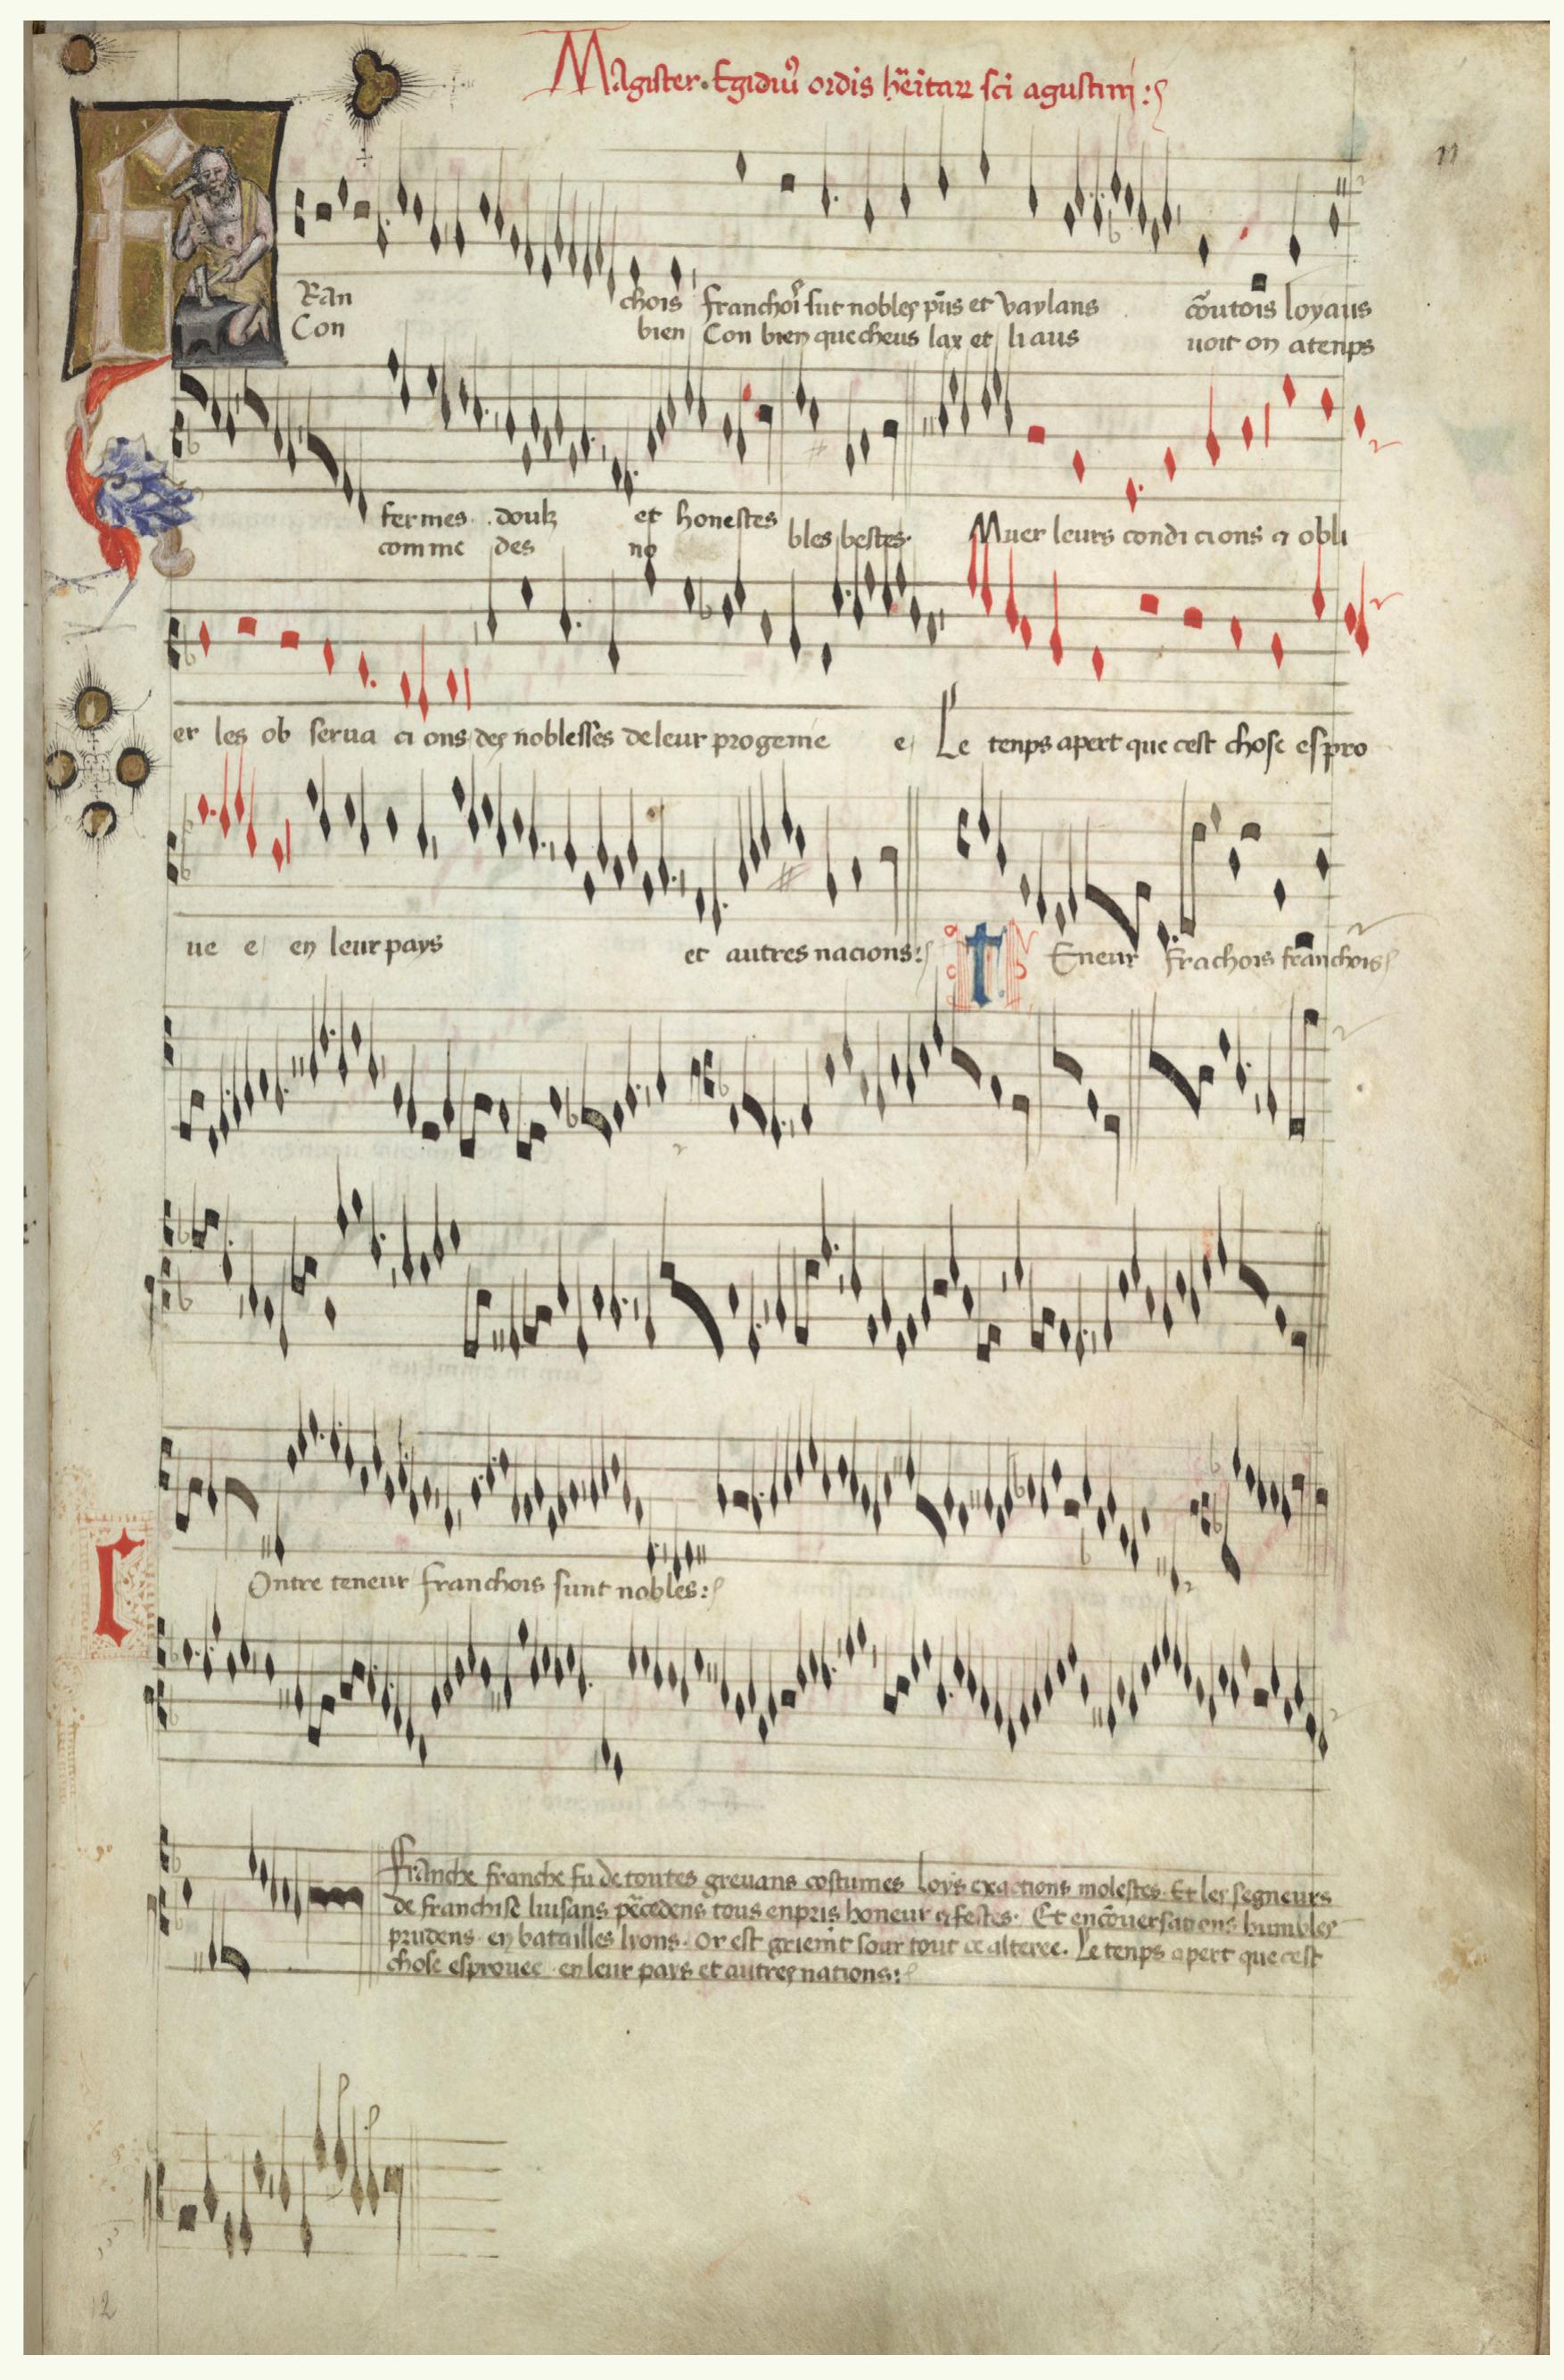 Magister. Egidiꝰ ordis hẽitaꝝ sci agustini:
11
Ran chois franchois sut nobles pus et vaylans cõutois loyaus
Con bien Con bien que cheus lax et li aus uoit on a tenps
fermes. doulz et honestes Muer leurs condi cions et obli
comme des no bles bestes.
er les ob serua ci ons des noblesses de leur progenie e Le tenps apert que cest chose es pro
ue e en leur pays et autres nacions: T Eneur Frachois franchois
C Ontre teneur franchois sunt nobles:
Franche franche fu de toutes greuans costumes Loys exactions molestes. Et les segneurs
de franchise luisans pcedens tous en pris honeur et festes. Et en cõuersations humbles
prudens en batailles lyons. Or est griemt sour tout ce alteree. Le tenps apert que cest
chose esprouee en leur pays et autres nations:
12